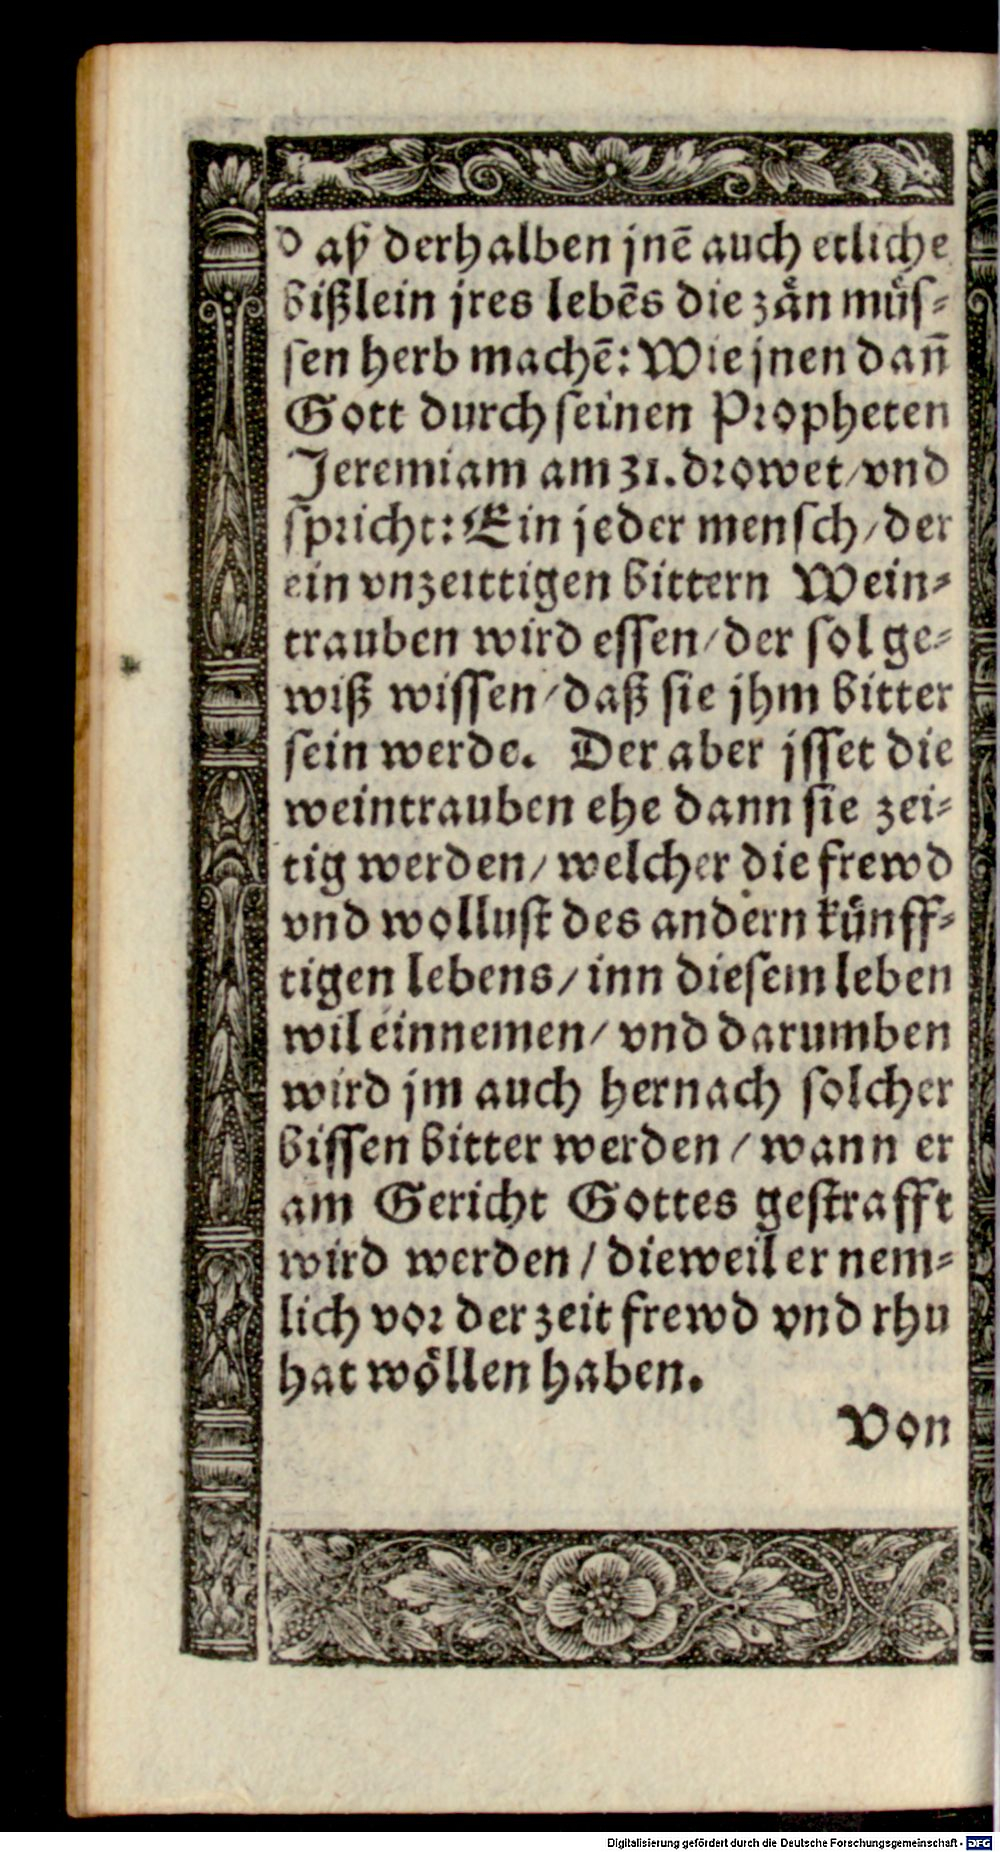 daß derhalben jnē auch etliche
bißlein jres lebēs die zaͤn muͤs⸗
sen herb machē: Wie jnen dañ
Gott durch seinen Propheten
Jeremiam am 31. drowet/vnd
spricht: Ein jeder mensch/der
ein vnzeittigen bittern Wein⸗
trauben wird essen/der sol ge⸗
wiß wissen/daß sie jhm bitter
sein werde. Der aber jsset die
weintrauben ehe dann sie zei⸗
tig werden/welcher die frewd
vnd wollust des andern kuͤnff⸗
tigen lebens/inn diesem leben
wil einnemen/vnd darumben
wird jm auch hernach solcher
bissen bitter werden/wann er
am Gericht Gottes gestrafft
wird werden/dieweil er nem⸗
lich vor der zeit frewd vnd rhu
hat woͤllen haben.
Von
Digitalisierung gefördert durch die Deutsche Forschungsgemeinschaft - DFG